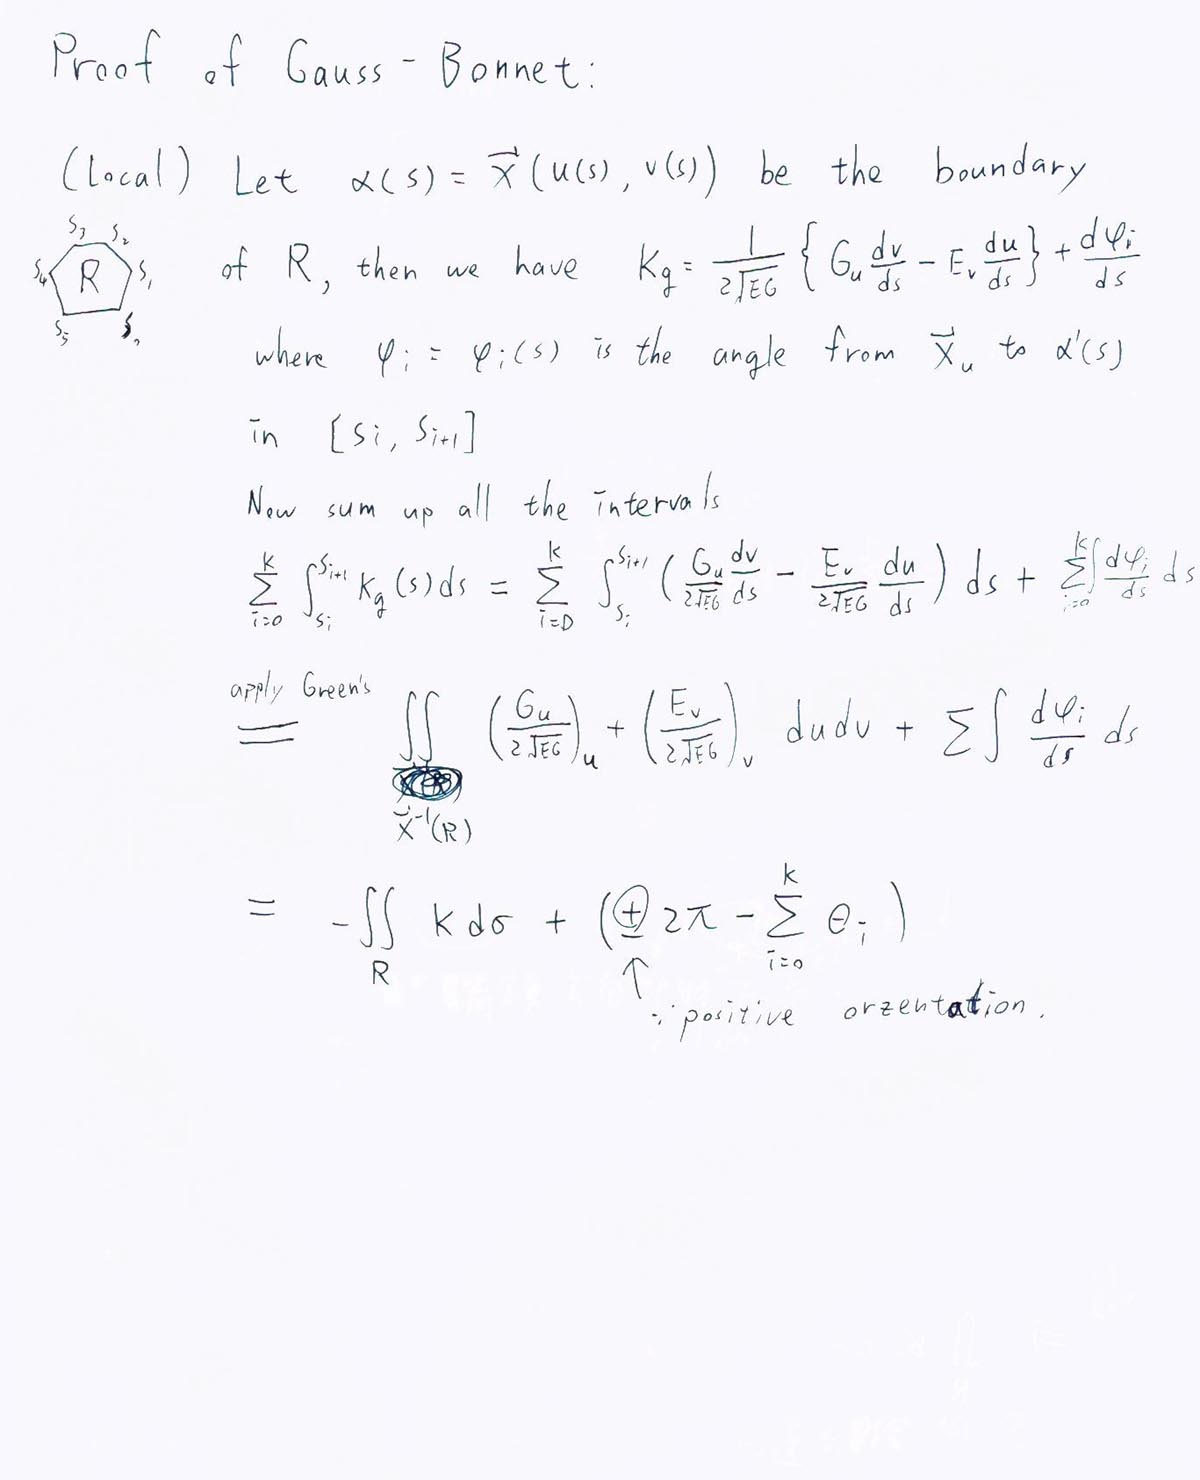 Proof of Gauss-Bonnet:
(Local) Let α(s) = X⃗(u(s), v(s)) be the boundary
S₃ S₂ S₄ R S₁ S₅ S₀
of R, then we have Kg = 1/(2√EG) { Gᵤ dv/ds - Eᵥ du/ds } + dφᵢ/ds
where φᵢ = φᵢ(s) is the angle from X⃗ᵤ to α'(s)
in [Sᵢ, Sᵢ₊₁]
Now sum up all the intervals
∑_{i=0}^{k} ∫_{Sᵢ}^{Sᵢ₊₁} Kg(s) ds = ∑_{i=0}^{k} ∫_{Sᵢ}^{Sᵢ₊₁} ( Gᵤ/(2√EG) dv/ds - Eᵥ/(2√EG) du/ds ) ds + ∑_{i=0}^{k} ∫ dφᵢ/ds ds
apply Green's
= ∬_{X⃗⁻¹(R)} (Gᵤ/(2√EG))ᵤ + (Eᵥ/(2√EG))ᵥ du dv + ∑ ∫ dφᵢ/ds ds
= -∬_R K dσ + (± 2π - ∑_{i=0}^{k} θᵢ)
↑
∵ positive orientation.